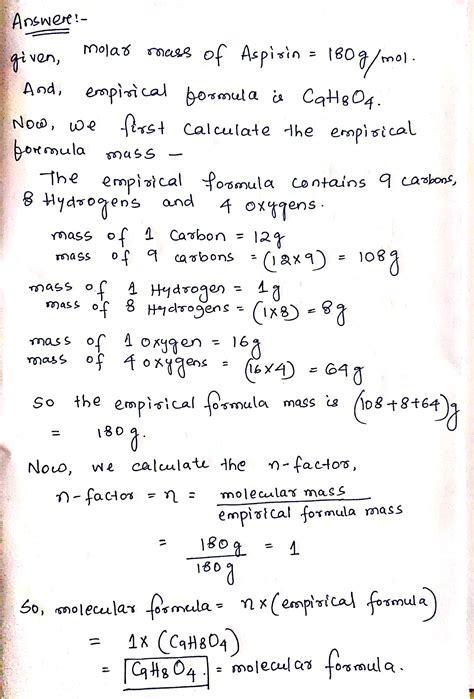 Answere:-
given, molar mass of Aspirin = 180g/mol.
And, empirical formula is C9H8O4.
Now, we first calculate the empirical
formula mass —
The empirical formula contains 9 carbons,
8 Hydrogens and 4 oxygens.
mass of 1 Carbon = 12g
mass of 9 carbons = (12x9) = 108g
mass of 1 Hydrogen = 1g
mass of 8 Hydrogens = (1x8) = 8g
mass of 1 oxygen = 16g
mass of 4 oxygens = (16x4) = 64g
so the empirical formula mass is (108+8+64)g
= 180g.
Now, we calculate the n-factor,
n-factor = n = molecular mass / empirical formula mass
= 180g / 180g = 1
So, molecular formula = nx(empirical formula)
= 1x (C9H8O4)
= C9H8O4. = molecular formula.